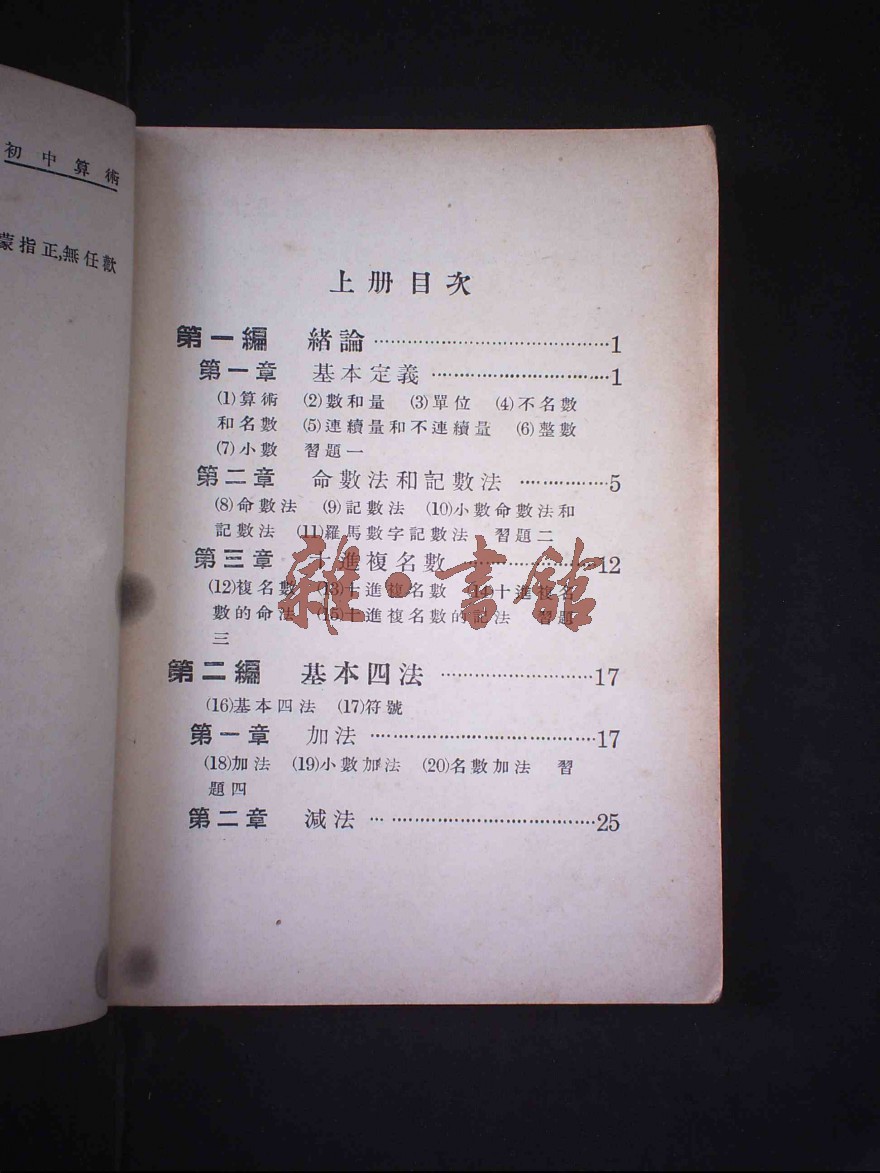 初中算術
蒙指正,無任歡
上册目次
第一編 緒論 ········································1
第一章 基本定義 ································1
(1)算術 (2)數和量 (3)單位 (4)不名數
和名數 (5)連續量和不連續量 (6)整數
(7)小數 習題一
第二章 命數法和記數法 ················5
(8)命數法 (9)記數法 (10)小數命數法和
記數法 (11)羅馬數字記數法 習題二
第三章 十進複名數 ························12
(12)複名數 (13)十進複名數 (14)十進複名
數的命法 (15)十進複名數的記法 習題
三
雜·書館
第二編 基本四法 ···························17
(16)基本四法 (17)符號
第一章 加法 ········································17
(18)加法 (19)小數加法 (20)名數加法 習
題四
第二章 減法 ········································25